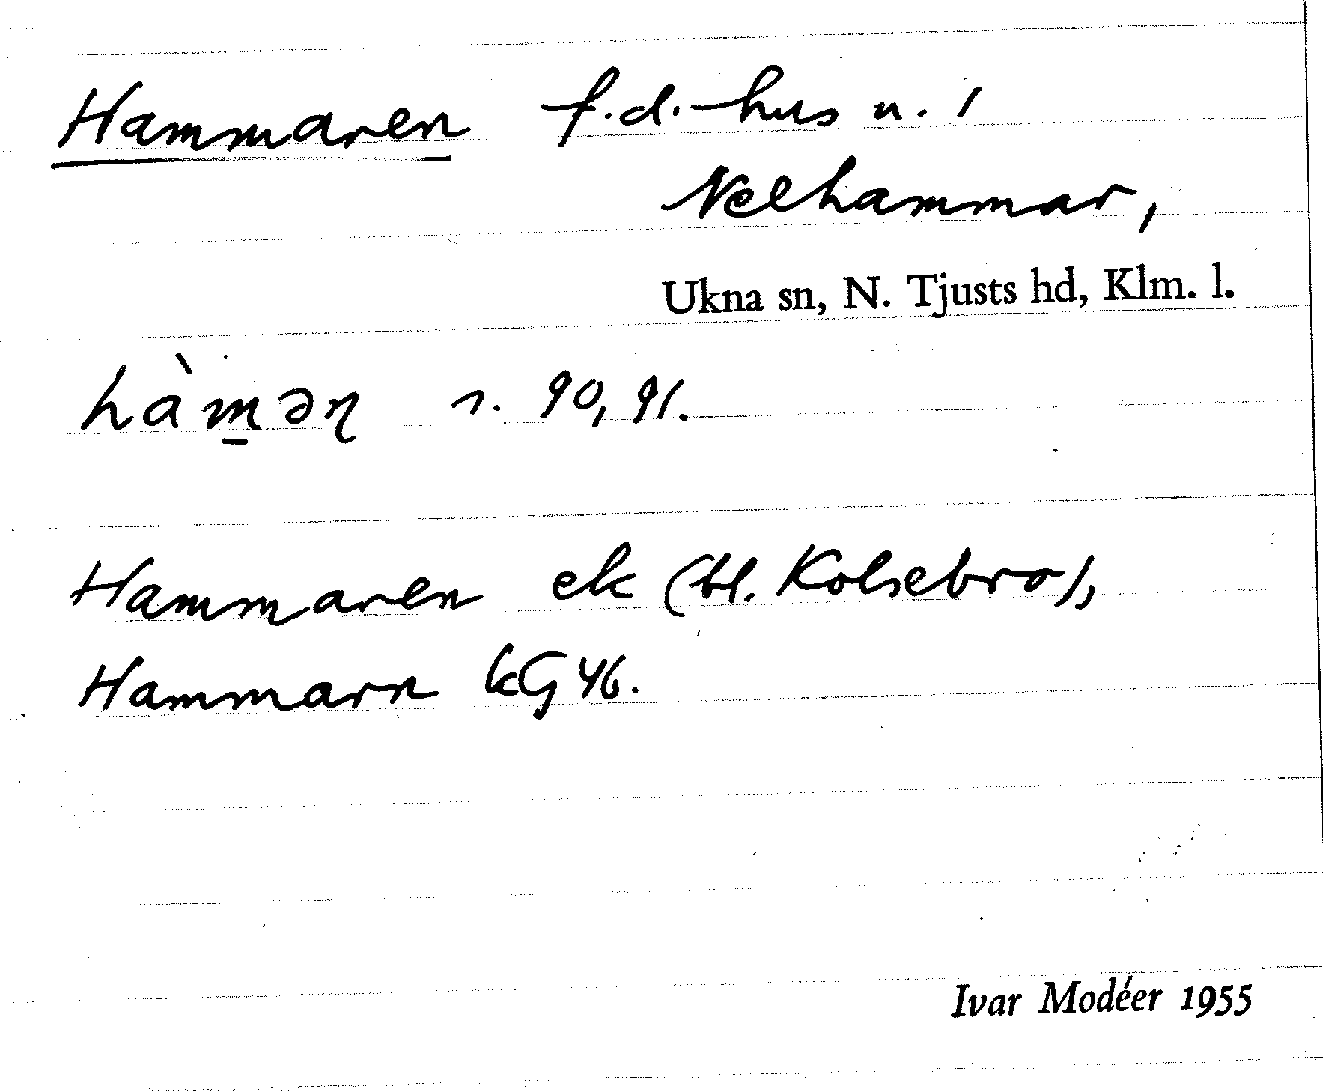 Hammaren f.d. hus u. 1
Nelhammar,
Ukna sn, N. Tjusts hd, Klm. l.
hàm̲əɳ s. 90, 91.
Hammaren ek (bl. Kolsebro),
Hammarn kG 46.
Ivar Modéer 1955